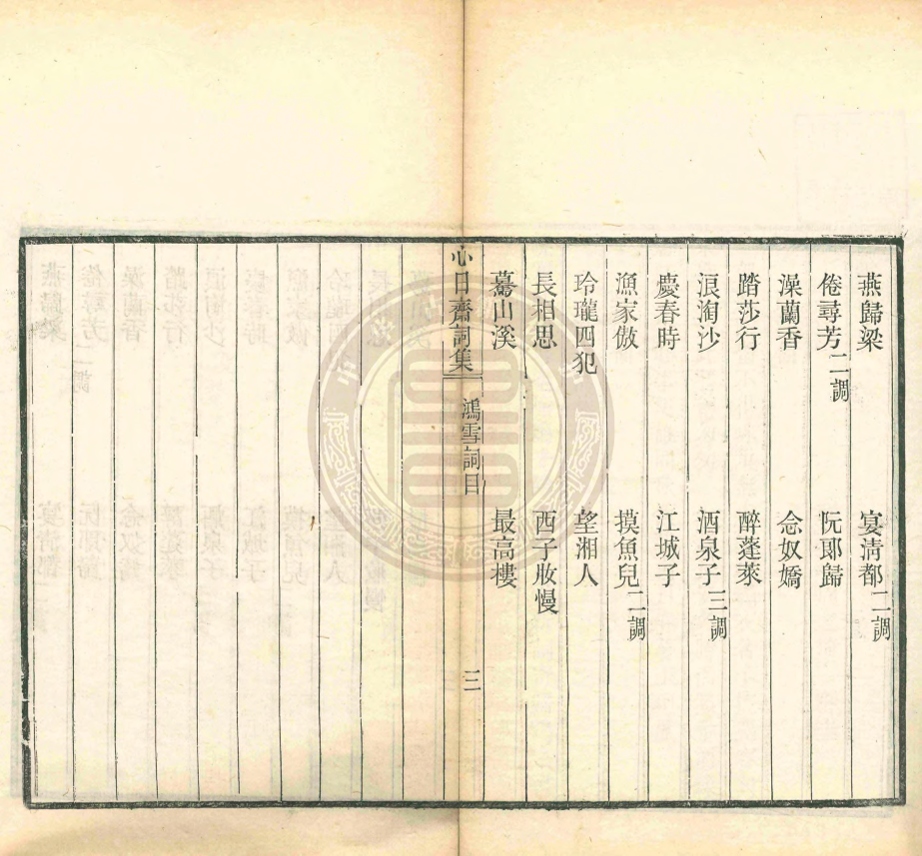 燕歸梁 宴淸都二調
倦尋芳二調 阮郞歸
澡蘭香 念奴嬌
踏莎行 醉蓬萊
浪淘沙 酒泉子三調
慶春時 江城子
漁家傲 摸魚兒二調
玲瓏四犯 望湘人
長相思 西子妝慢
驀山溪 最高樓
心日齋詞集 鴻雪詞目 三